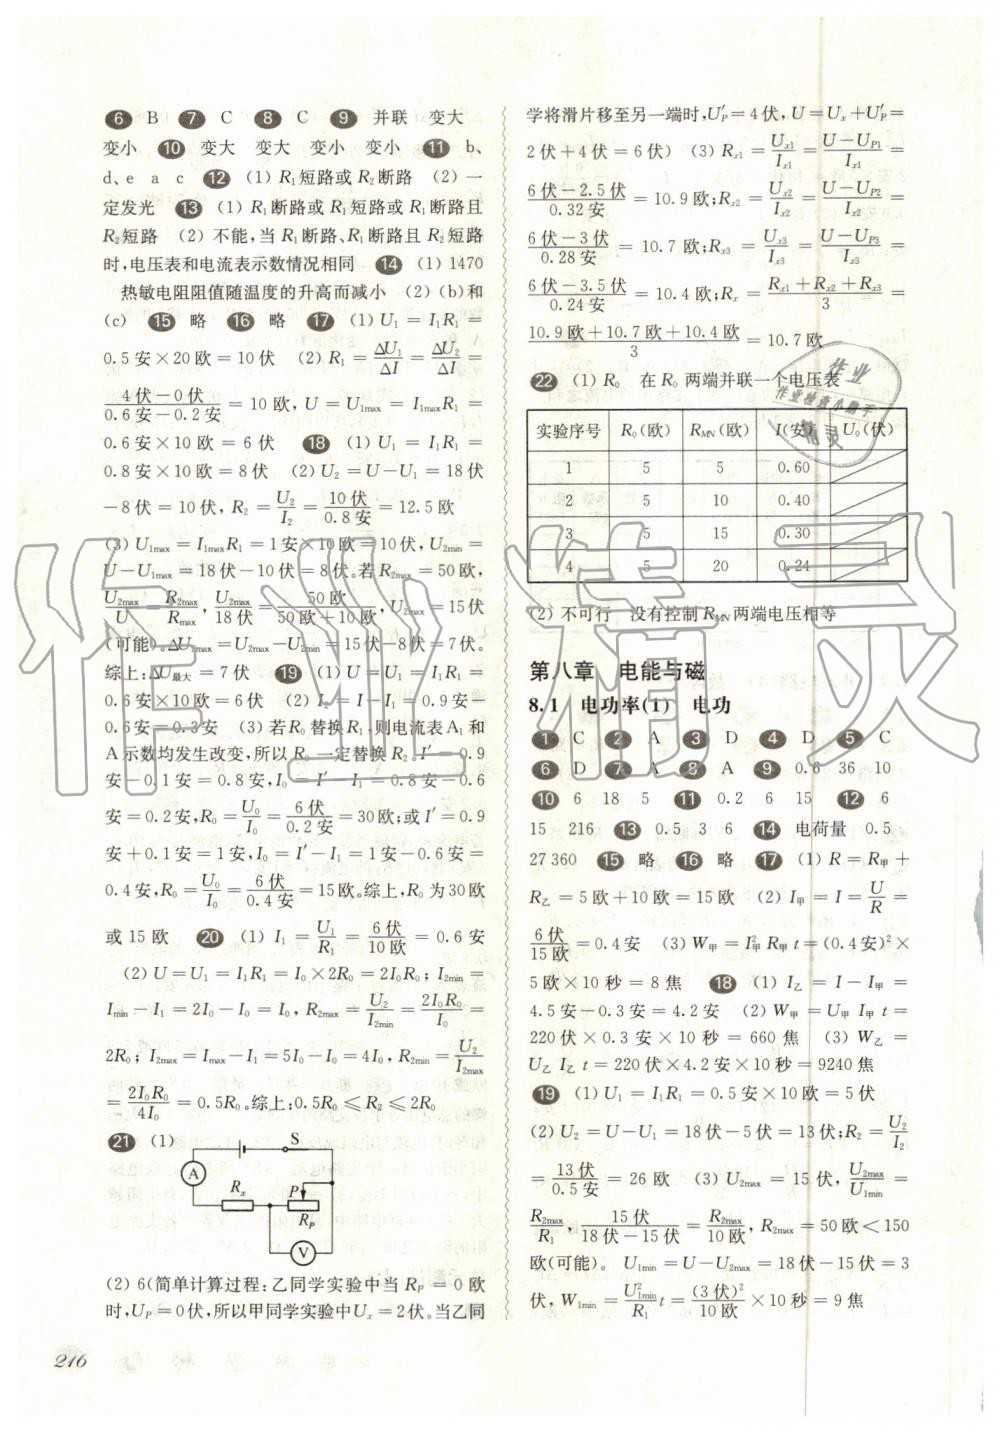 6 B 7 C 8 C 9 并联 变大
变小 10 变大 变大 变小 变小 11 b、
d、e a c 12 (1) R₁短路或R₂断路 (2) 一
定发光 13 (1) R₁断路或R₁短路或R₁断路且
R₂短路 (2) 不能,当R₁断路、R₁断路且R₂短路
时,电压表和电流表示数情况相同 14 (1) 1470
热敏电阻阻值随温度的升高而减小 (2) (b)和
(c) 15 略 16 略 17 (1) U₁=I₁R₁=
0.5安×20欧=10伏 (2) R₁=ΔU₁/ΔI=ΔU₂/ΔI=
(4伏-0伏)/(0.6安-0.2安)=10欧,U=U₁max=I₁maxR₁=
0.6安×10欧=6伏 18 (1) U₁=I₁R₁=
0.8安×10欧=8伏 (2) U₂=U-U₁=18伏
-8伏=10伏,R₂=U₂/I₂=10伏/0.8安=12.5欧
(3) U₁max=I₁maxR₁=1安×10欧=10伏,U₂min=
U-U₁max=18伏-10伏=8伏。若R₂max=50欧,
U₂max/U=R₂max/Rmax,U₂max/18伏=50欧/(50欧+10欧),U₂max=15伏
(可能)。ΔU₂=U₂max-U₂min=15伏-8伏=7伏。
综上:ΔU最大=7伏 19 (1) U=U₁=I₁R₁=
0.6安×10欧=6伏 (2) I₂=I-I₁=0.9安-
0.6安=0.3安 (3) 若R₀替换R₁,则电流表A₁和
A示数均发生改变,所以R₀一定替换R₂。I′=0.9
安-0.1安=0.8安,I₀=I′-I₁=0.8安-0.6
安=0.2安,R₀=U₀/I₀=6伏/0.2安=30欧;或I′=0.9
安+0.1安=1安,I₀=I′-I₁=1安-0.6安=
0.4安,R₀=U₀/I₀=6伏/0.4安=15欧。综上,R₀为30欧
或15欧 20 (1) I₁=U₁/R₁=6伏/10欧=0.6安
(2) U=U₁=I₁R₁=I₀×2R₀=2I₀R₀;I₂min=
Imin-I₁=2I₀-I₀=I₀,R₂max=U₂/I₂min=2I₀R₀/I₀=
2R₀;I₂max=Imax-I₁=5I₀-I₀=4I₀,R₂min=U₂/I₂max
=2I₀R₀/4I₀=0.5R₀。综上:0.5R₀≤R₂≤2R₀
21 (1)
S
A
Rₓ
P
R_P
V
(2) 6(简单计算过程:乙同学实验中当R_P=0欧
时,U_P=0伏,所以甲同学实验中Uₓ=2伏。当乙同
216
学将滑片移至另一端时,U′_P=4伏,U=Uₓ+U′_P=
2伏+4伏=6伏) (3) Rₓ₁=Uₓ₁/Iₓ₁=(U-U_P1)/Iₓ₁=
(6伏-2.5伏)/0.32安=10.9欧;Rₓ₂=Uₓ₂/Iₓ₂=(U-U_P2)/Iₓ₂=
(6伏-3伏)/0.28安=10.7欧;Rₓ₃=Uₓ₃/Iₓ₃=(U-U_P3)/Iₓ₃=
(6伏-3.5伏)/0.24安=10.4欧;Rₓ=(Rₓ₁+Rₓ₂+Rₓ₃)/3=
(10.9欧+10.7欧+10.4欧)/3=10.7欧
22 (1) R₀ 在R₀两端并联一个电压表
实验序号 R₀(欧) R_MN(欧) I(安) U₀(伏)
1 5 5 0.60
2 5 10 0.40
3 5 15 0.30
4 5 20 0.24
(2) 不可行 没有控制R_MN两端电压相等
第八章 电能与磁
8.1 电功率(1) 电功
1 C 2 A 3 D 4 D 5 C
6 D 7 A 8 A 9 0.6 36 10
10 6 18 5 11 0.2 6 15 12 6
15 216 13 0.5 3 6 14 电荷量 0.5
27 360 15 略 16 略 17 (1) R=R甲+
R乙=5欧+10欧=15欧 (2) I甲=I=U/R=
6伏/15欧=0.4安 (3) W甲=I²甲R甲t=(0.4安)²×
5欧×10秒=8焦 18 (1) I乙=I-I甲=
4.5安-0.3安=4.2安 (2) W甲=U甲I甲t=
220伏×0.3安×10秒=660焦 (3) W乙=
U乙I乙t=220伏×4.2安×10秒=9240焦
19 (1) U₁=I₁R₁=0.5安×10欧=5伏
(2) U₂=U-U₁=18伏-5伏=13伏;R₂=U₂/I₂
=13伏/0.5安=26欧 (3) U₂max=15伏,U₂max/U₁min=
R₂max/R₁,15伏/(18伏-15伏)=R₂max/10欧,R₂max=50欧<150
欧(可能)。U₁min=U-U₂max=18伏-15伏=3
伏,W₁min=U²₁min/R₁ t=(3伏)²/10欧×10秒=9焦
作业精灵
作业
作业检查小助手
精灵